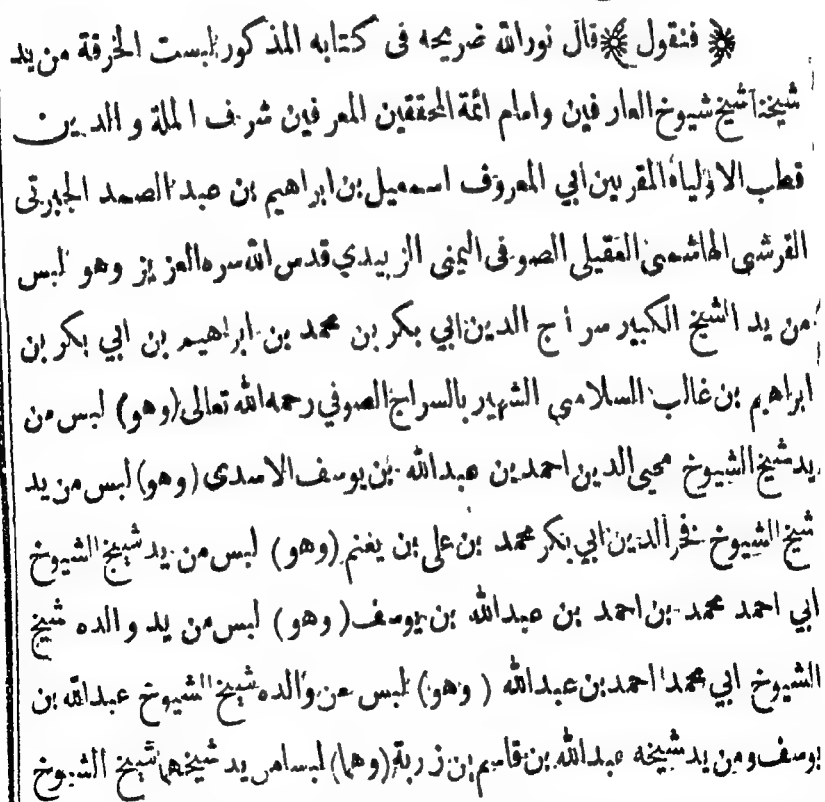 ﴿ فنقول ﴾ قال نورالله ضريحه فى كتابه المذكور لبست الخرقة من يد
شيخنا شيخ شيوخ العارفين وامام ائمة المحققين المعرفين شرف الملة والدين
قطب الاولياء المقربين ابي المعروف اسمعيل بن ابراهيم بن عبد الصمد الجبرتى
القرشى الهاشمى العقيلى الصوفى اليمنى الزبيدي قدس الله سره العزيز وهو لبس
من يد الشيخ الكبير سراج الدين ابي بكر بن محمد بن ابراهيم بن ابي بكر بن
ابراهيم بن غالب السلامى الشهير بالسراج الصوفي رحمه الله تعالى (وهو) لبس من
يد شيخ الشيوخ محيى الدين احمد بن عبدالله بن يوسف الاسدى (وهو) لبس من يد
شيخ الشيوخ فخرالدين ابي بكر محمد بن على بن يغنم (وهو) لبس من يد شيخ الشيوخ
ابي احمد محمد بن احمد بن عبدالله بن يوسف (وهو) لبس من يد والده شيخ
الشيوخ ابي محمد احمد بن عبدالله (وهو) لبس من والده شيخ الشيوخ عبدالله بن
يوسف ومن يد شيخه عبدالله بن قاسم بن زربة (وهما) لبسا من يد شيخهما شيخ الشيوخ